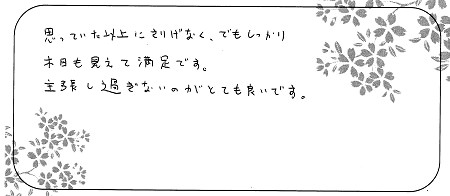 思っていた以上にさりげなく、でもしっかり
木目も見えて満足です。
主張し過ぎないのがとても良いです。